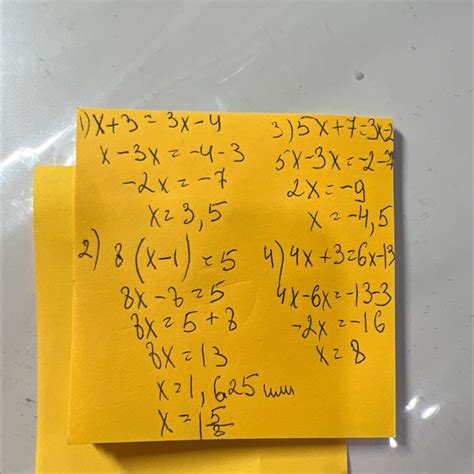 1) x+3=3x-4
x-3x=-4-3
-2x=-7
x=3,5
2) 8(x-1)=5
8x-8=5
8x=5+8
8x=13
x=1,625 или
x=1 5/8
3) 5x+7=3x-2
5x-3x=-2-7
2x=-9
x=-4,5
4) 4x+3=6x-13
4x-6x=-13-3
-2x=-16
x=8